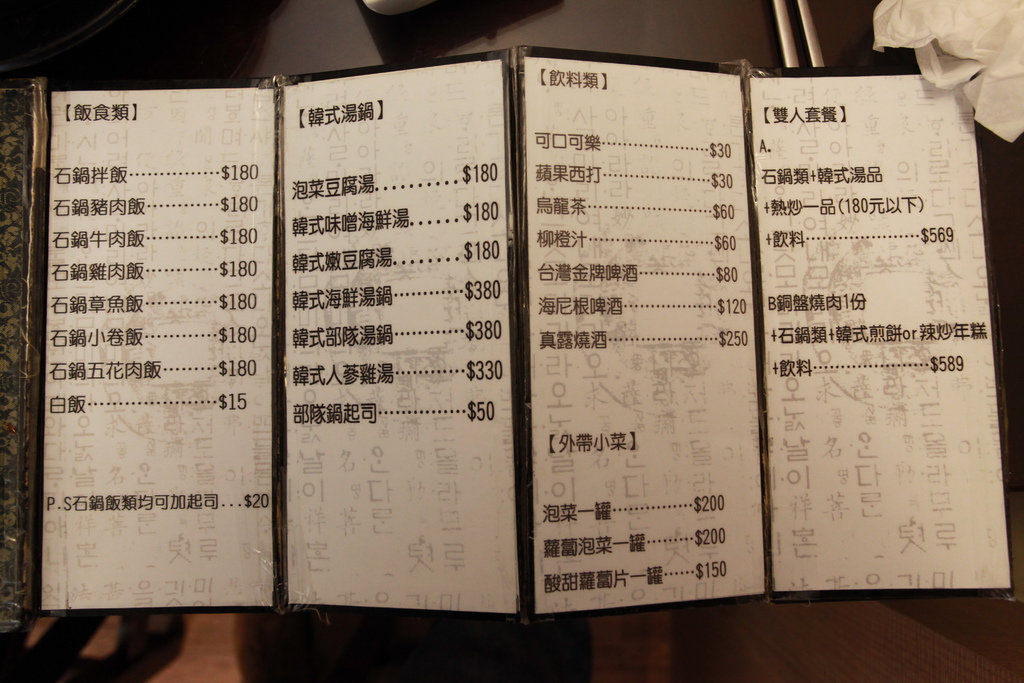 【飯食類】
石鍋拌飯…………$180
石鍋豬肉飯………$180
石鍋牛肉飯………$180
石鍋雞肉飯………$180
石鍋章魚飯………$180
石鍋小卷飯………$180
石鍋五花肉飯……$180
白飯………………$15
P.S石鍋飯類均可加起司...$20
【韓式湯鍋】
泡菜豆腐湯.........$180
韓式味噌海鮮湯......$180
韓式嫩豆腐湯.......$180
韓式海鮮湯鍋………$380
韓式部隊湯鍋………$380
韓式人蔘雞湯………$330
部隊鍋起司…………$50
【飲料類】
可口可樂……………$30
蘋果西打……………$30
烏龍茶………………$60
柳橙汁………………$60
台灣金牌啤酒………$80
海尼根啤酒…………$120
真露燒酒……………$250
【外帶小菜】
泡菜一罐…………$200
蘿蔔泡菜一罐……$200
酸甜蘿蔔片一罐……$150
【雙人套餐】
A.
石鍋類+韓式湯品
+熱炒一品(180元以下)
+飲料………………$569
B銅盤燒肉1份
+石鍋類+韓式煎餅or辣炒年糕
+飲料………………$589